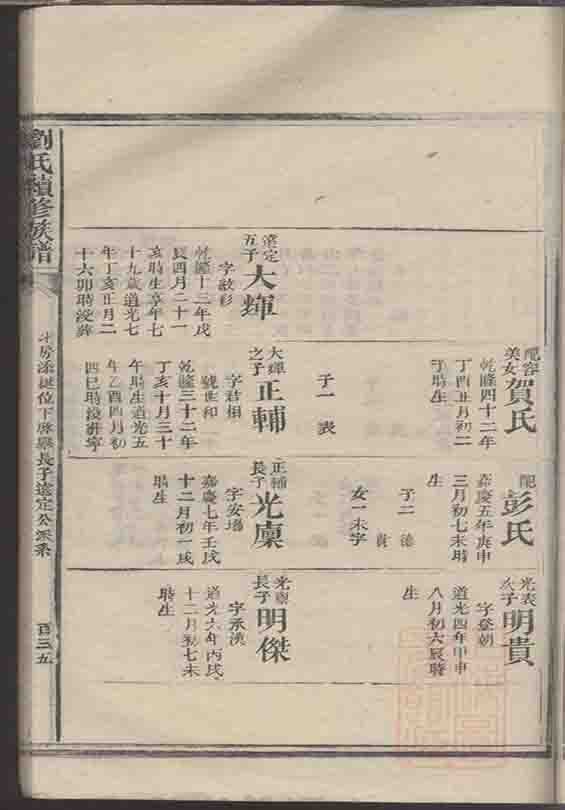 配容
美女
賀氏
乾隆四十二年
丁酉正月初二
子時生
子一 表
配
彭氏
嘉慶五年庚申
三月初七未時
生
子二 德
貴
女一未字
光表
次子
明貴
字登朝
道光四年甲申
八月初六辰時
生
遠定
五子
大輝
字啟彩
乾隆十三年戊
辰四月二十一
亥時生享年七
十九歲道光七
年丁亥正月二
十六卯時沒葬
大輝
之子
正輔
字君相
號世和
乾隆三十二年
丁亥十月三十
午時生道光五
年乙酉四月初
四巳時沒葬寧
正輔
長子
光廩
字安墦
嘉慶七年壬戌
十二月初一戌
時生
光廩
長子
明傑
字承漢
道光六年丙戌
十二月初七未
時生
劉氏續修族譜
房添挺位下脉舉長子遠定公派系
百三五